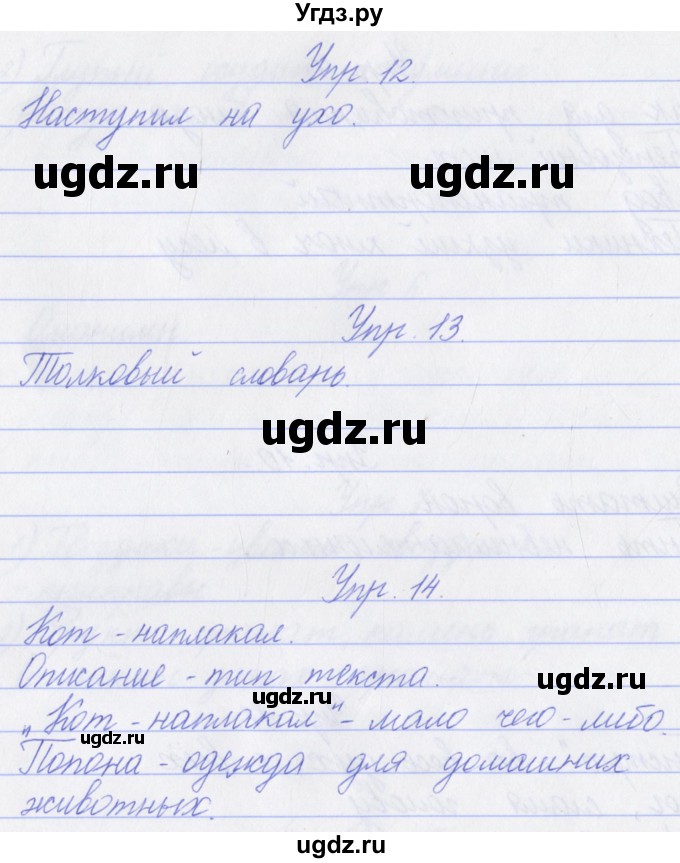 Угдз.ру
Упр. 12.
Наступил на ухо.
ugdz.ru ugdz.ru
Упр. 13.
Толковый словарь.
ugdz.ru
Упр. 14.
Кот - наплакал.
Описание - тип текста.
ugdz.ru ugdz.ru
„Кот - наплакал" - мало чего-либо.
ugdz.ru
Попона - одежда для домашних
животных.
ugdz.ru